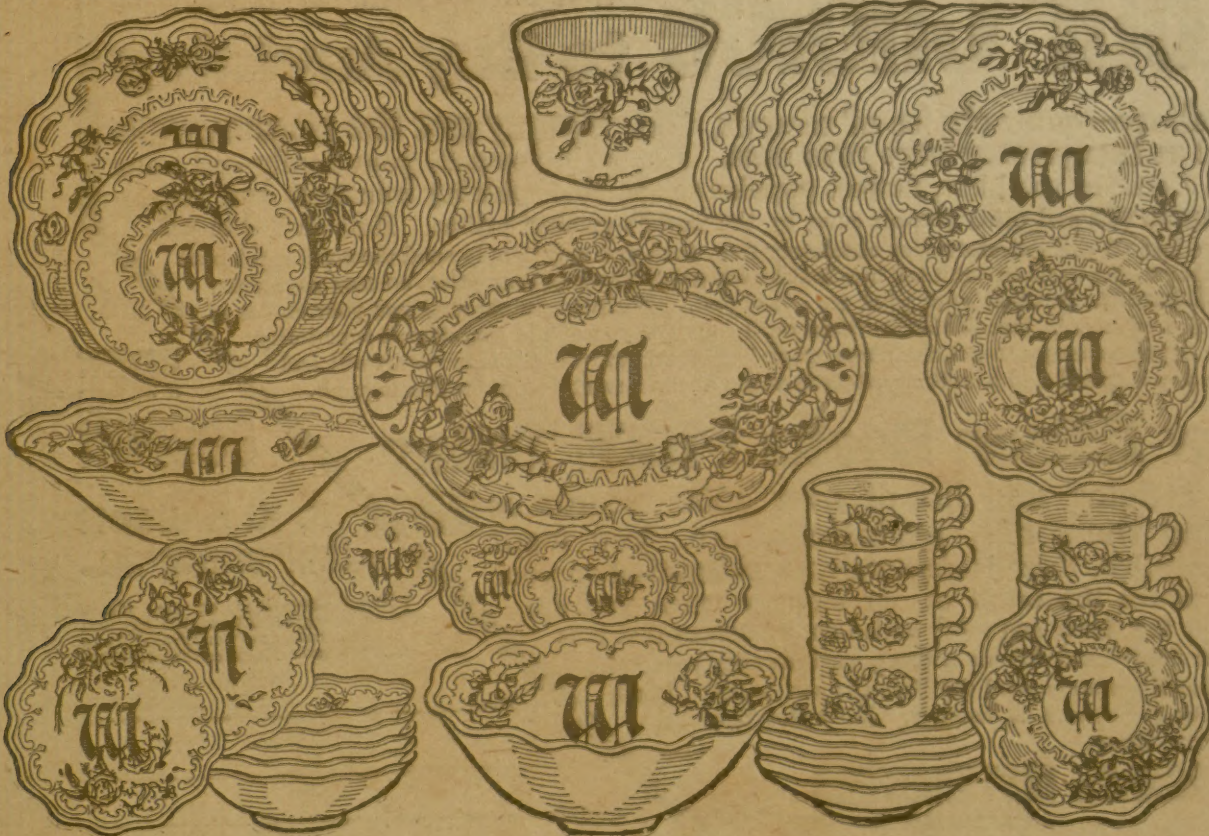 W
W
W
W
W
W
W
W
W
W
W
W
W